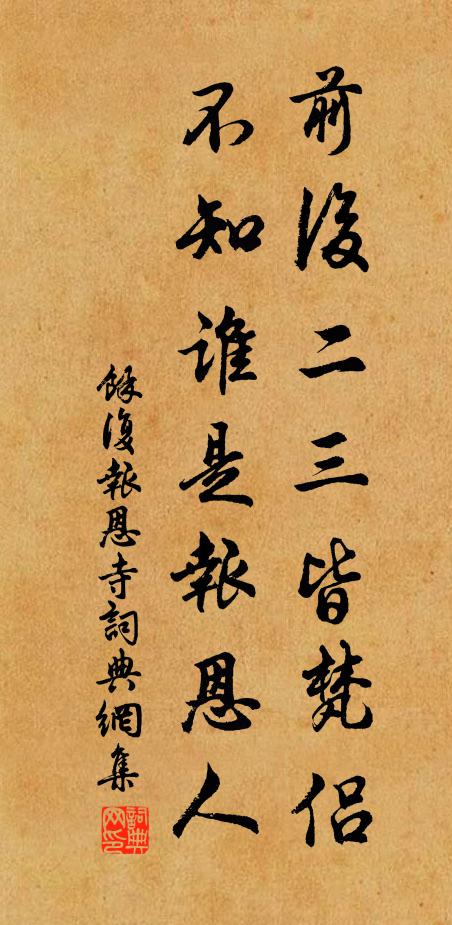 前後二三皆梵侶
不知誰是報恩人
餘復報恩寺詞典網集
詞典网印